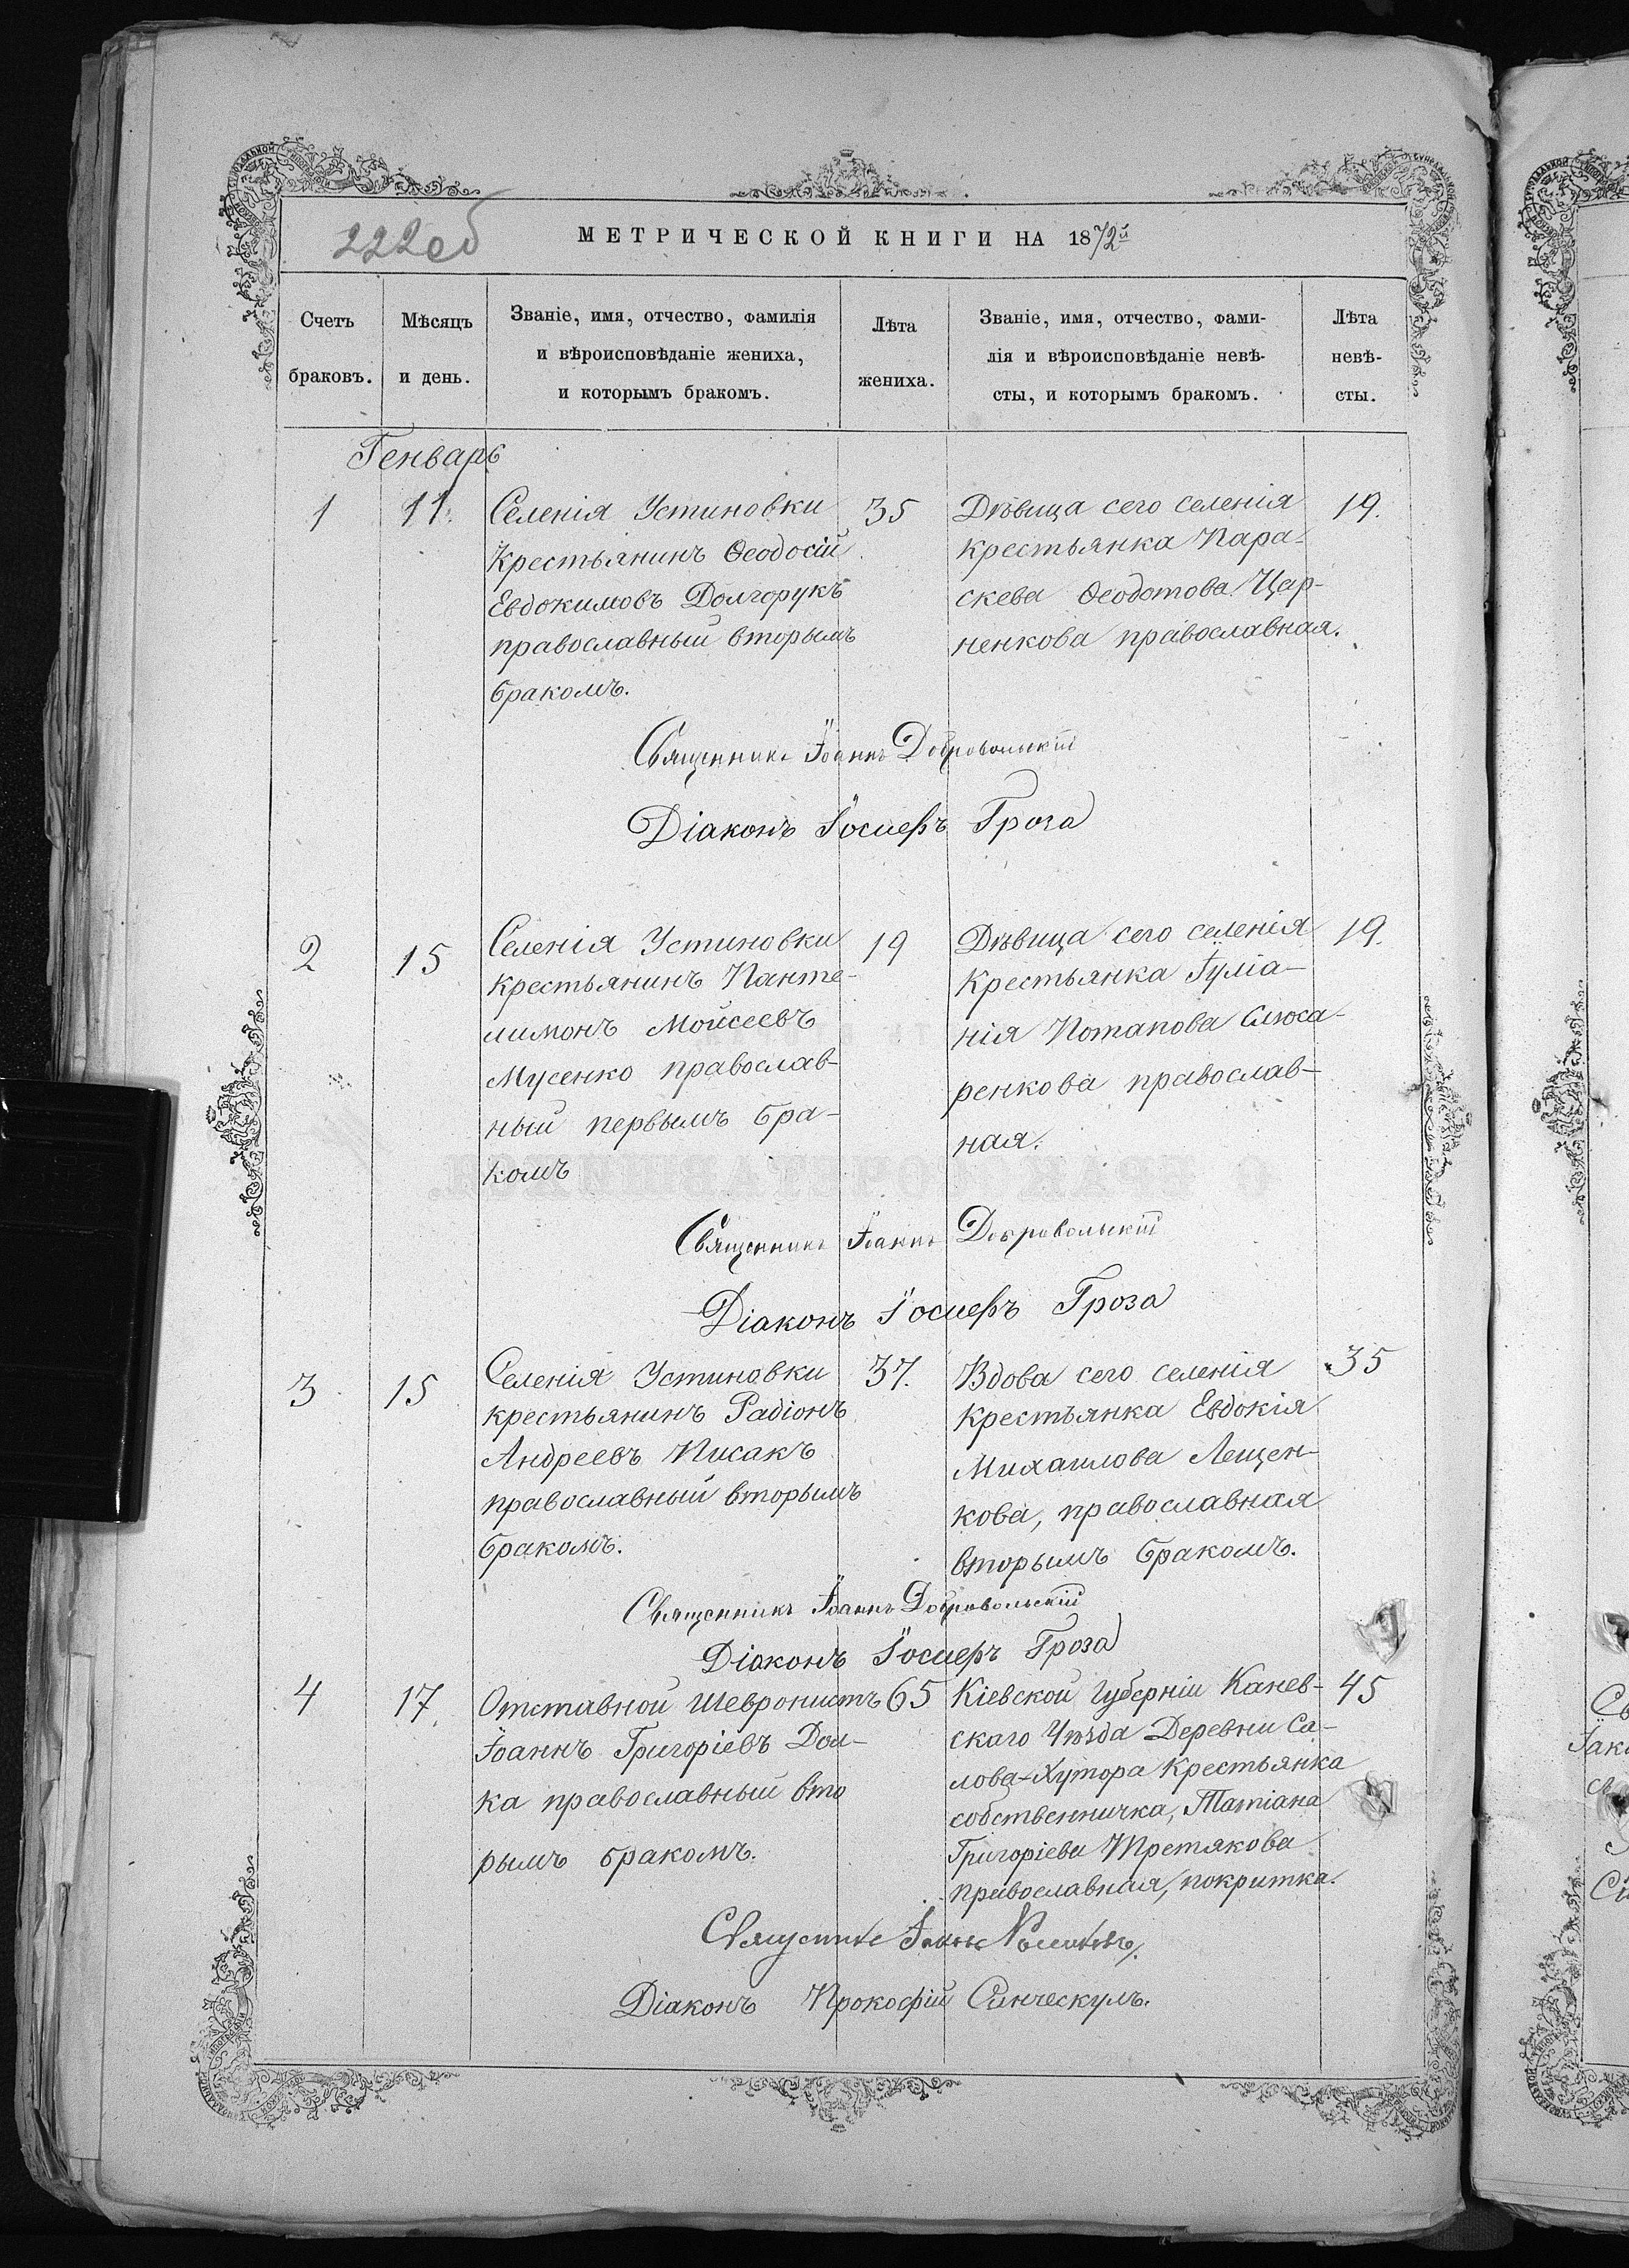 222об
МЕТРИЧЕСКОЙ КНИГИ НА 1872й
Счетъ
браковъ.
Мѣсяцъ
и день.
Званіе, имя, отчество, фамилія
и вѣроисповѣданіе жениха,
и которымъ бракомъ.
Лѣта
жениха.
Званіе, имя, отчество, фами-
лія и вѣроисповѣданіе невѣ-
сты, и которымъ бракомъ.
Лѣта
невѣ-
сты.
Генварь
1
11.
Селенія Устиновки
Крестьянинъ Ѳеодосій
Евдокимовъ Долгорукъ
православный вторымъ
бракомъ.
35
Дѣвица сего селенія
крестьянка Пара-
скева Ѳеодотова Цар-
ненкова православная.
19.
Священникъ Іоаннъ Добровольскій
Діаконъ Іосифъ Гроза
2
15
Селенія Устиновки
крестьянинъ Панте-
лимонъ Мойсеевъ
Мусенко православ-
ный первымъ бра-
комъ
19
Дѣвица сего селенія
Крестьянка Іуліа-
нія Потапова Слюса-
ренкова православ-
ная.
19.
Священникъ Іоаннъ Добровольскій
Діаконъ Іосифъ Гроза
3
15
Селенія Устиновки
крестьянинъ Радіонъ
Андреевъ Писакъ
православный вторымъ
бракомъ.
37.
Вдова сего селенія
Крестьянка Евдокія
Михаилова Лещен-
кова, православная
вторымъ бракомъ.
35
Священникъ Іоаннъ Добровольскій
Діаконъ Іосифъ Гроза
4
17.
Отставной Шевронистъ
Іоаннъ Григоріевъ Дол-
ка православный вто
рымъ бракомъ.
65
Кіевской Губерніи Канев-
скаго Уѣзда Деревни Са-
лова-Хутора Крестьянка
собственничка, Татіана
Григоріева Третякова
православная, покритка.
45
Діаконъ Прокофій